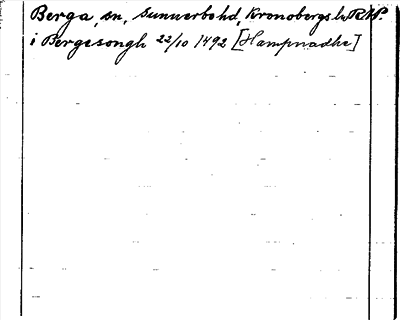 Berga, sn, Sunnerbo hd, Kronobergs l. RAP.
i Bergesongh 22/10 1492 [Hampnadhe]